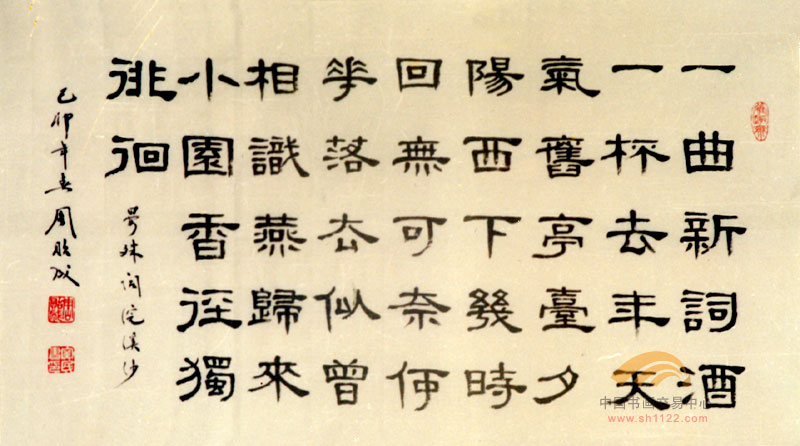 一曲新詞酒
一杯去年天
氣舊亭臺夕
陽西下幾時
回無可奈何
華落去似曾
相識燕歸來
小園香徑獨
徘徊
晏殊詞浣溪沙
己卯年春周成
中国书画交易中心
www.sh1122.com